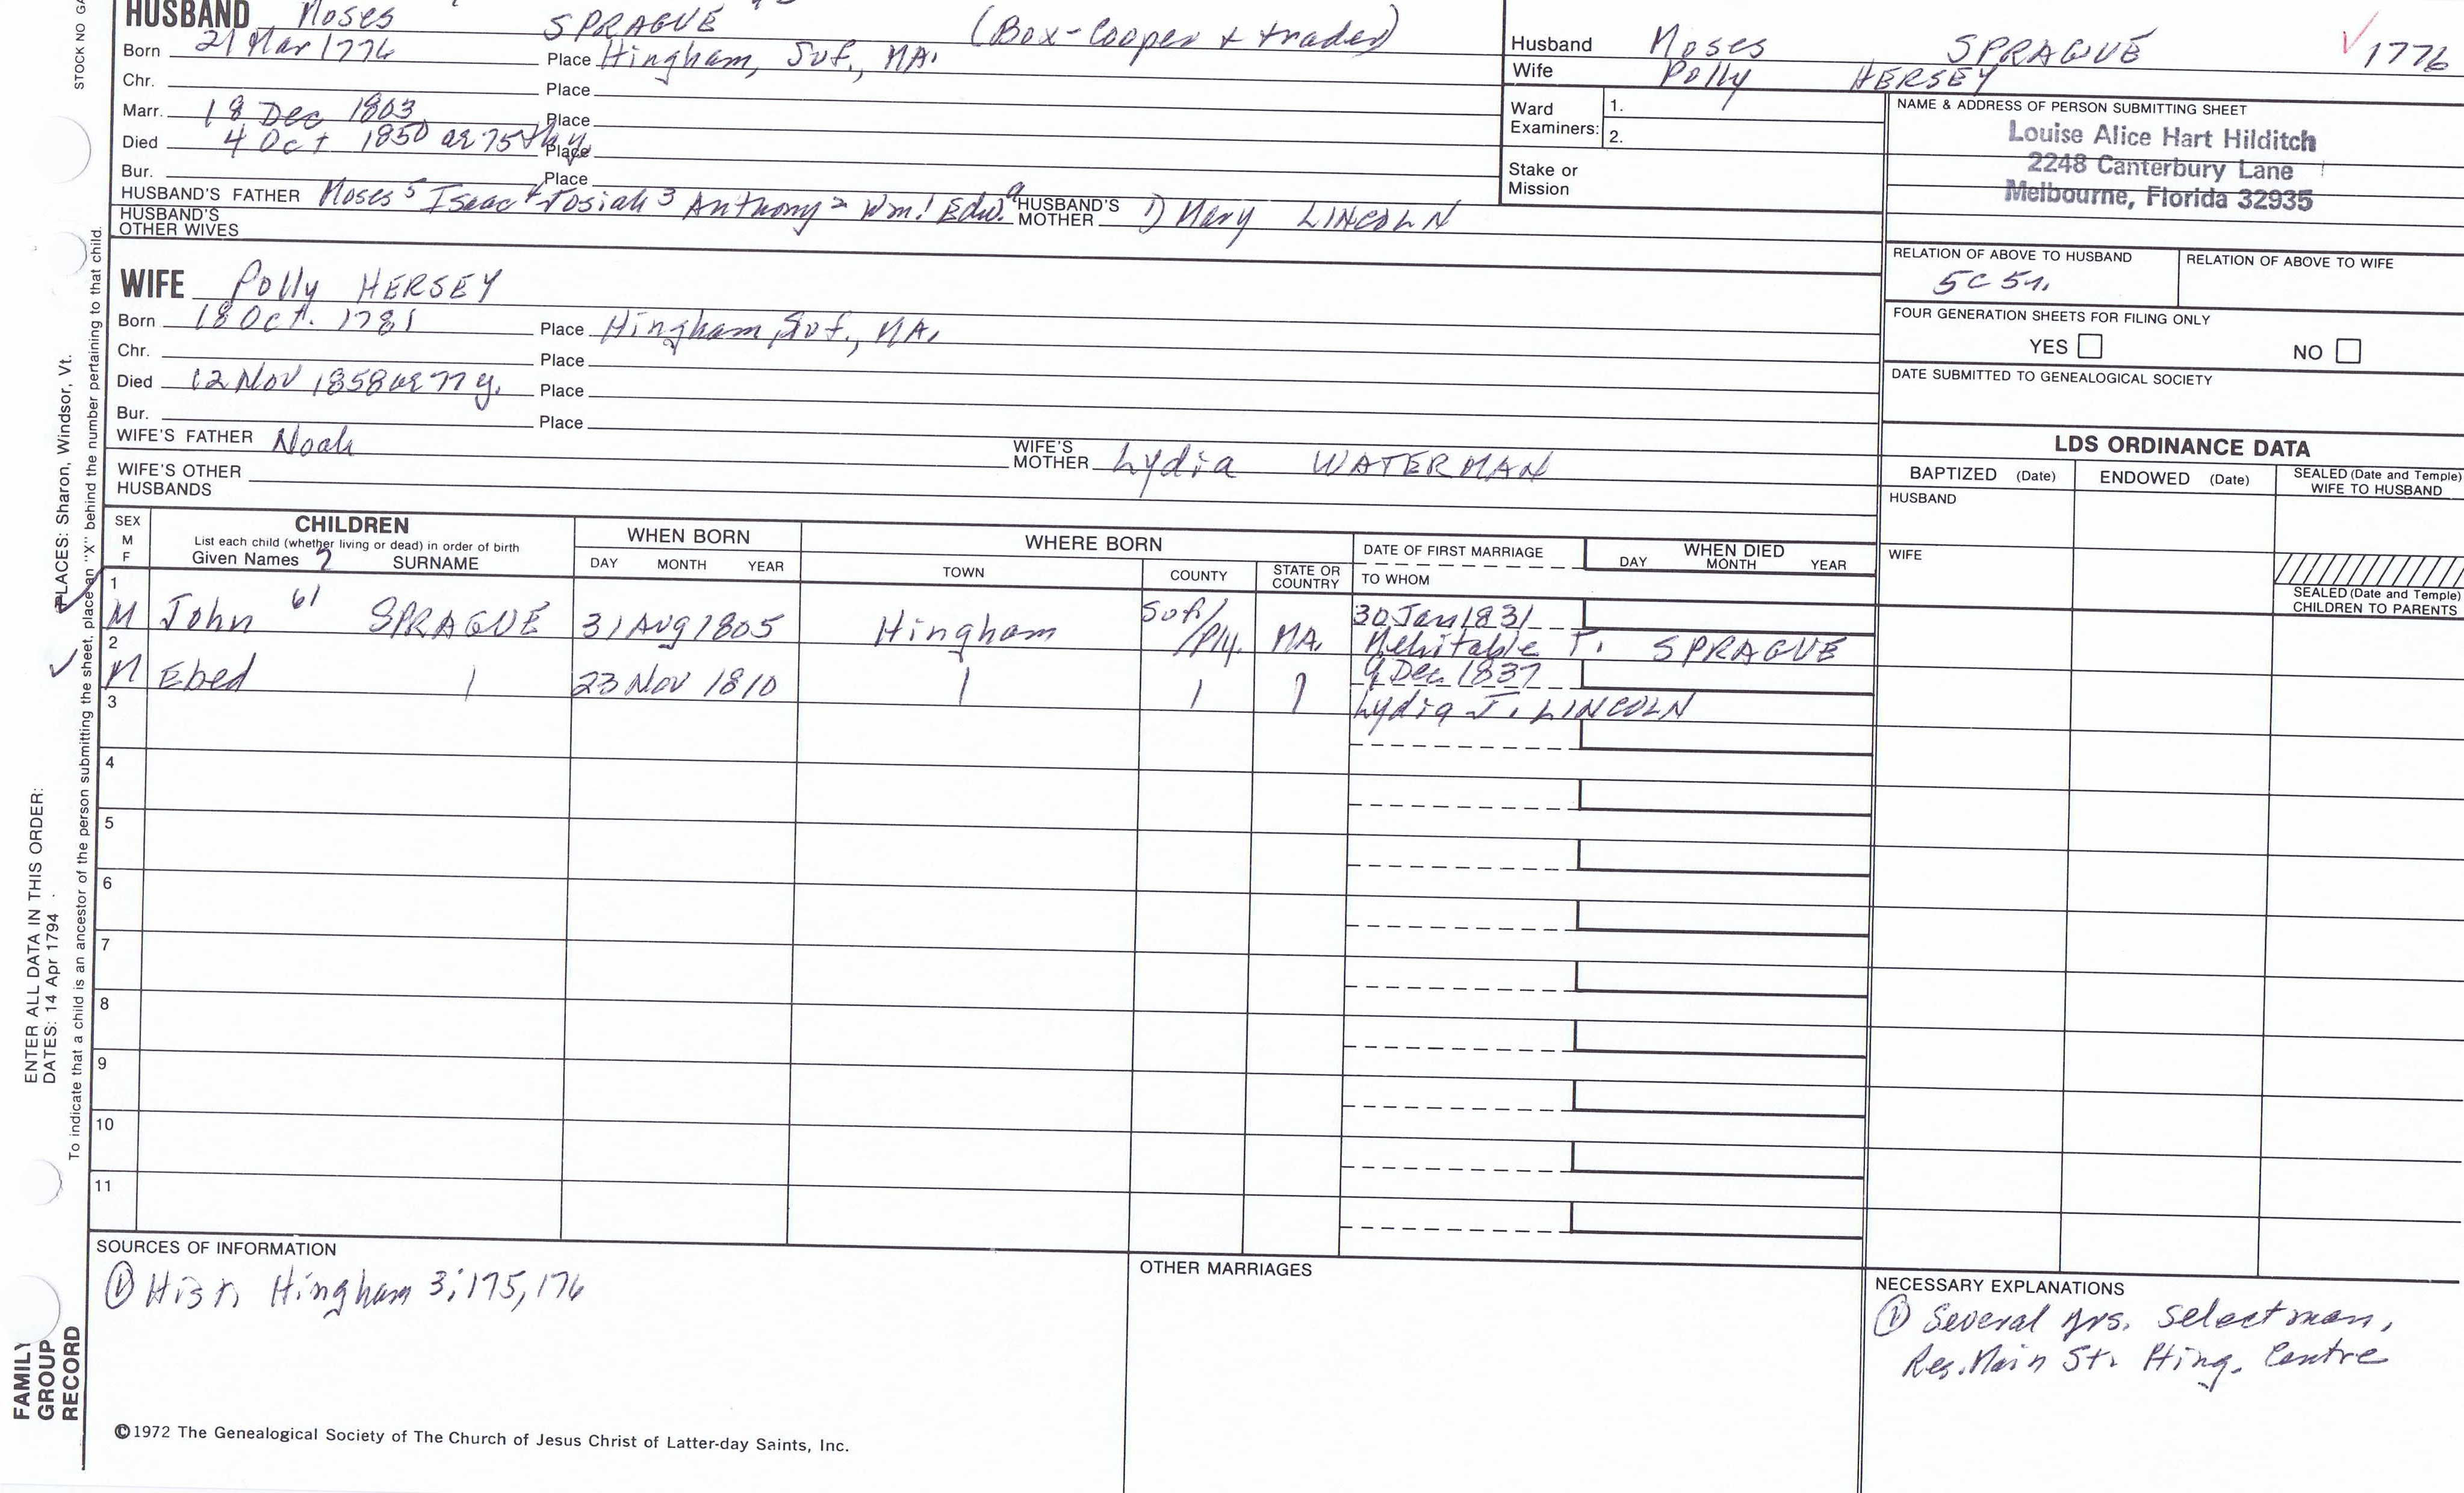 STOCK NO GA
HUSBAND Moses SPRAGUE (Box-Cooper & trader)
Born 21 Mar 1776 Place Hingham, Suf., MA.
Chr. Place
Marr. 18 Dec 1803 Place
Died 4 Oct 1850 ae 75th y. Place
Bur. Place
HUSBAND'S FATHER Moses 5 Isaac 4 Josiah 3 Anthony 2 Wm. 1 Edw. a HUSBAND'S MOTHER 1) Mary LINCOLN
HUSBAND'S OTHER WIVES
Husband Moses SPRAGUE √ 1776
Wife Polly HERSEY
Ward Examiners: 1.
2.
Stake or Mission
NAME & ADDRESS OF PERSON SUBMITTING SHEET
Louise Alice Hart Hilditch
2248 Canterbury Lane
Melbourne, Florida 32935
RELATION OF ABOVE TO HUSBAND RELATION OF ABOVE TO WIFE
5C 5r.
FOUR GENERATION SHEETS FOR FILING ONLY
YES NO
DATE SUBMITTED TO GENEALOGICAL SOCIETY
WIFE Polly HERSEY
Born 18 Oct. 1781 Place Hingham, Suf., MA.
Chr. Place
Died 12 Nov 1858 ae 77 y. Place
Bur. Place
WIFE'S FATHER Noah WIFE'S MOTHER Lydia WATERMAN
WIFE'S OTHER HUSBANDS
LDS ORDINANCE DATA
BAPTIZED (Date) ENDOWED (Date) SEALED (Date and Temple) WIFE TO HUSBAND
HUSBAND
WIFE
SEALED (Date and Temple) CHILDREN TO PARENTS
SEX M F
CHILDREN
List each child (whether living or dead) in order of birth
Given Names 7 SURNAME
WHEN BORN
DAY MONTH YEAR
WHERE BORN
TOWN COUNTY STATE OR COUNTRY
DATE OF FIRST MARRIAGE
TO WHOM
WHEN DIED
DAY MONTH YEAR
1 M John 61 SPRAGUE 31 Aug 1805 Hingham Suf/Ply. MA. 30 Jan 1831
Mehitable T. SPRAGUE
2 M Ebed 23 Nov 1810 9 Dec 1837
Lydia J. LINCOLN
3
4
5
6
7
8
9
10
11
SOURCES OF INFORMATION
① Hist. Hingham 3:175,176
OTHER MARRIAGES
NECESSARY EXPLANATIONS
① Several yrs. Selectman,
Res. Main St. Hing. Centre
©1972 The Genealogical Society of The Church of Jesus Christ of Latter-day Saints, Inc.
FAMILY GROUP RECORD
ENTER ALL DATA IN THIS ORDER:
DATES: 14 Apr 1794
PLACES: Sharon, Windsor, Vt.
To indicate that a child is an ancestor of the person submitting the sheet, place an "X" behind the number pertaining to that child.